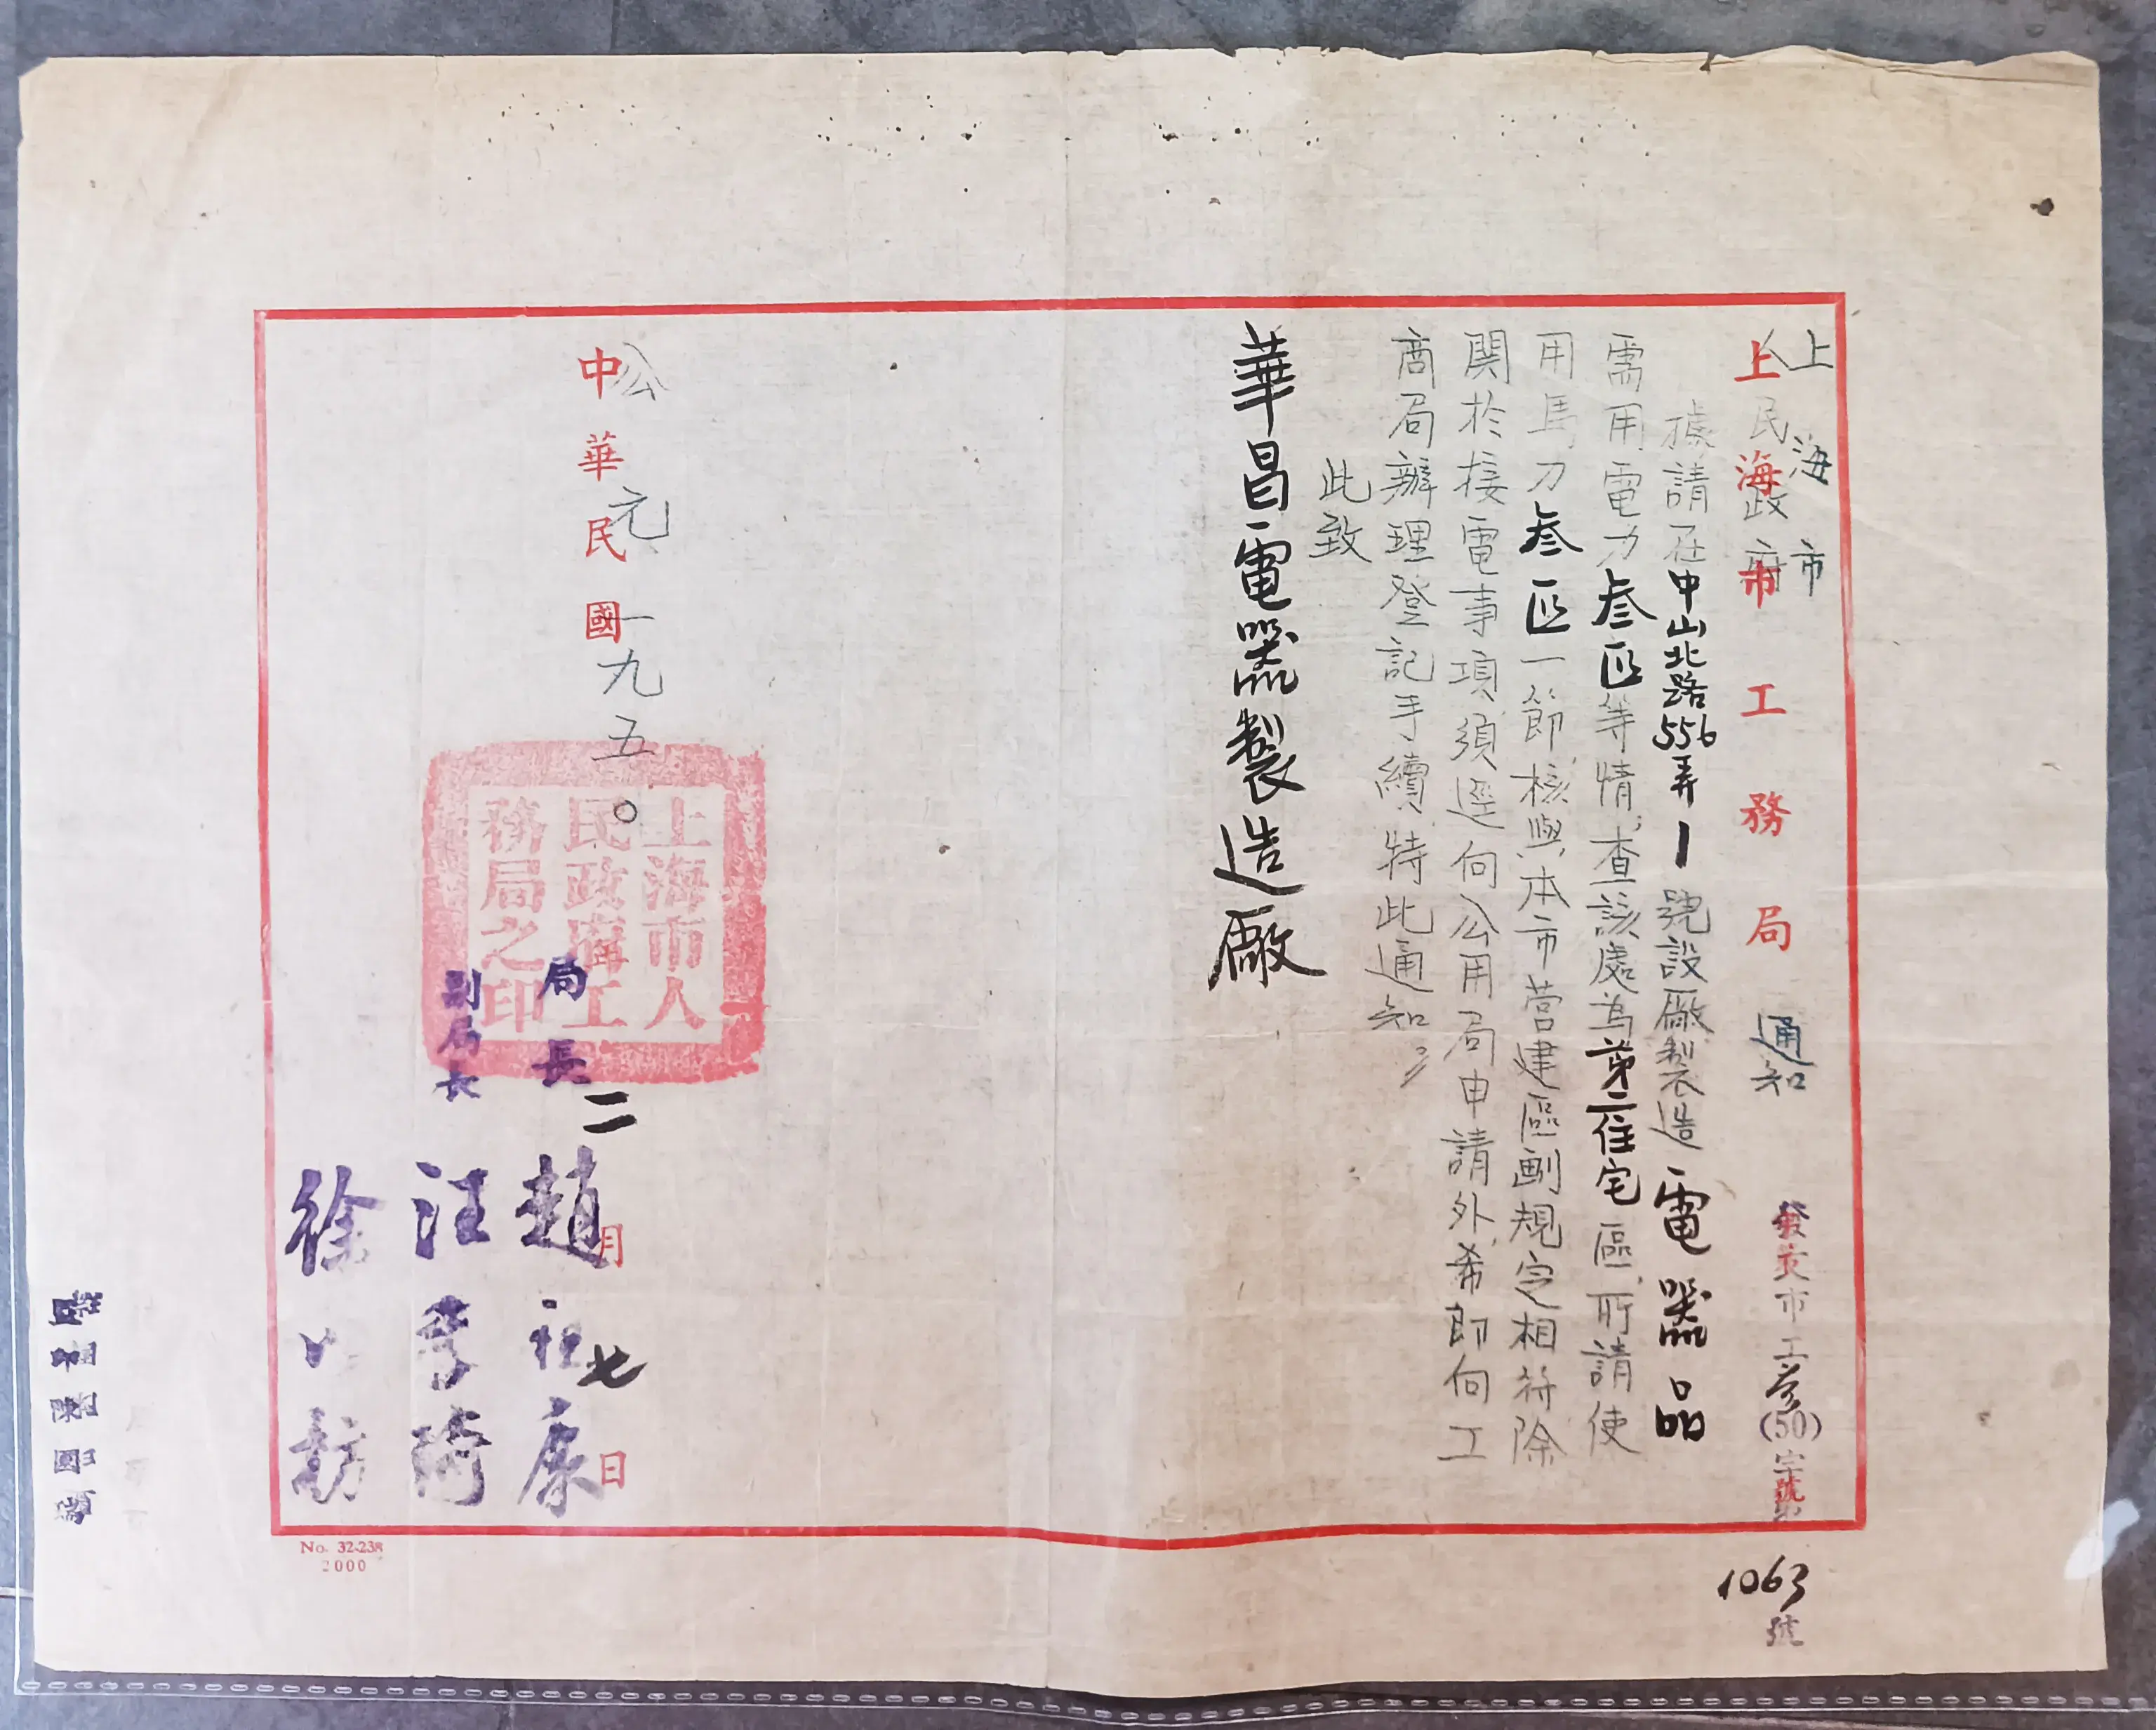 上海市
人民政府
上海市工務局 通知
發文市工參(50)字第
號
1063
號
據請在中山北路556弄1號設廠製造電器品
需用電力叁匹等情查該處為第二住宅區所請使
用馬力叁匹一節核與本市营建區劃規定相符除
関於接電事項須逕向公用局申請外希即向工
商局辦理登記手續特此通知
此致
華昌電器製造廠
中華民國
公元一九五〇
二月七日
上海市人
民政府工
務局之印
局長 趙祖康
副局長 汪季琦
徐以枋
No. 32-238
2000